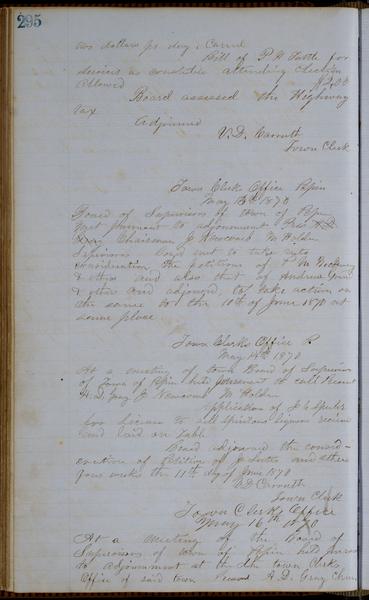 295
two dollars pr day; Carried
Bill of P H Tuttle for
services as constable attending election
Allowed $2.00
Board assessed the Highway
tax
Adjourned
V. D. Carruth
Town Clerk
Town Clerks Office Pepin
May 13th 1870
Board of Supervisors of town of Pepin
met pursuant to adjournment Pres A. D.
Gray Chairman J Newcomb M Holden
Supervisors Board met to take into
consideration the petition of M
& others and also that of Andrew
& others and adjourned, to take action on
the same to the 10th of June 1870 at
same place
Town Clerks Office P
May 14th 1870
At a meeting of town Board of Supervisors
of Town of Pepin held pursuant to call Present
A. D. Gray J Newcomb M Holden
Application of J C
for license to sell spirituous liquors received
and laid on table
Board adjourned the consid-
eration of Petition of J and others
four weeks the 11th day of June 1870
V D Carruth
Town Clerk
Town Clerks Office
May 16th 1870
At a meeting of the Board of
Supervisors of town of Pepin held pursuant
to adjournment at the town Clerks
Office of said town Present A. D. Gray Chairm